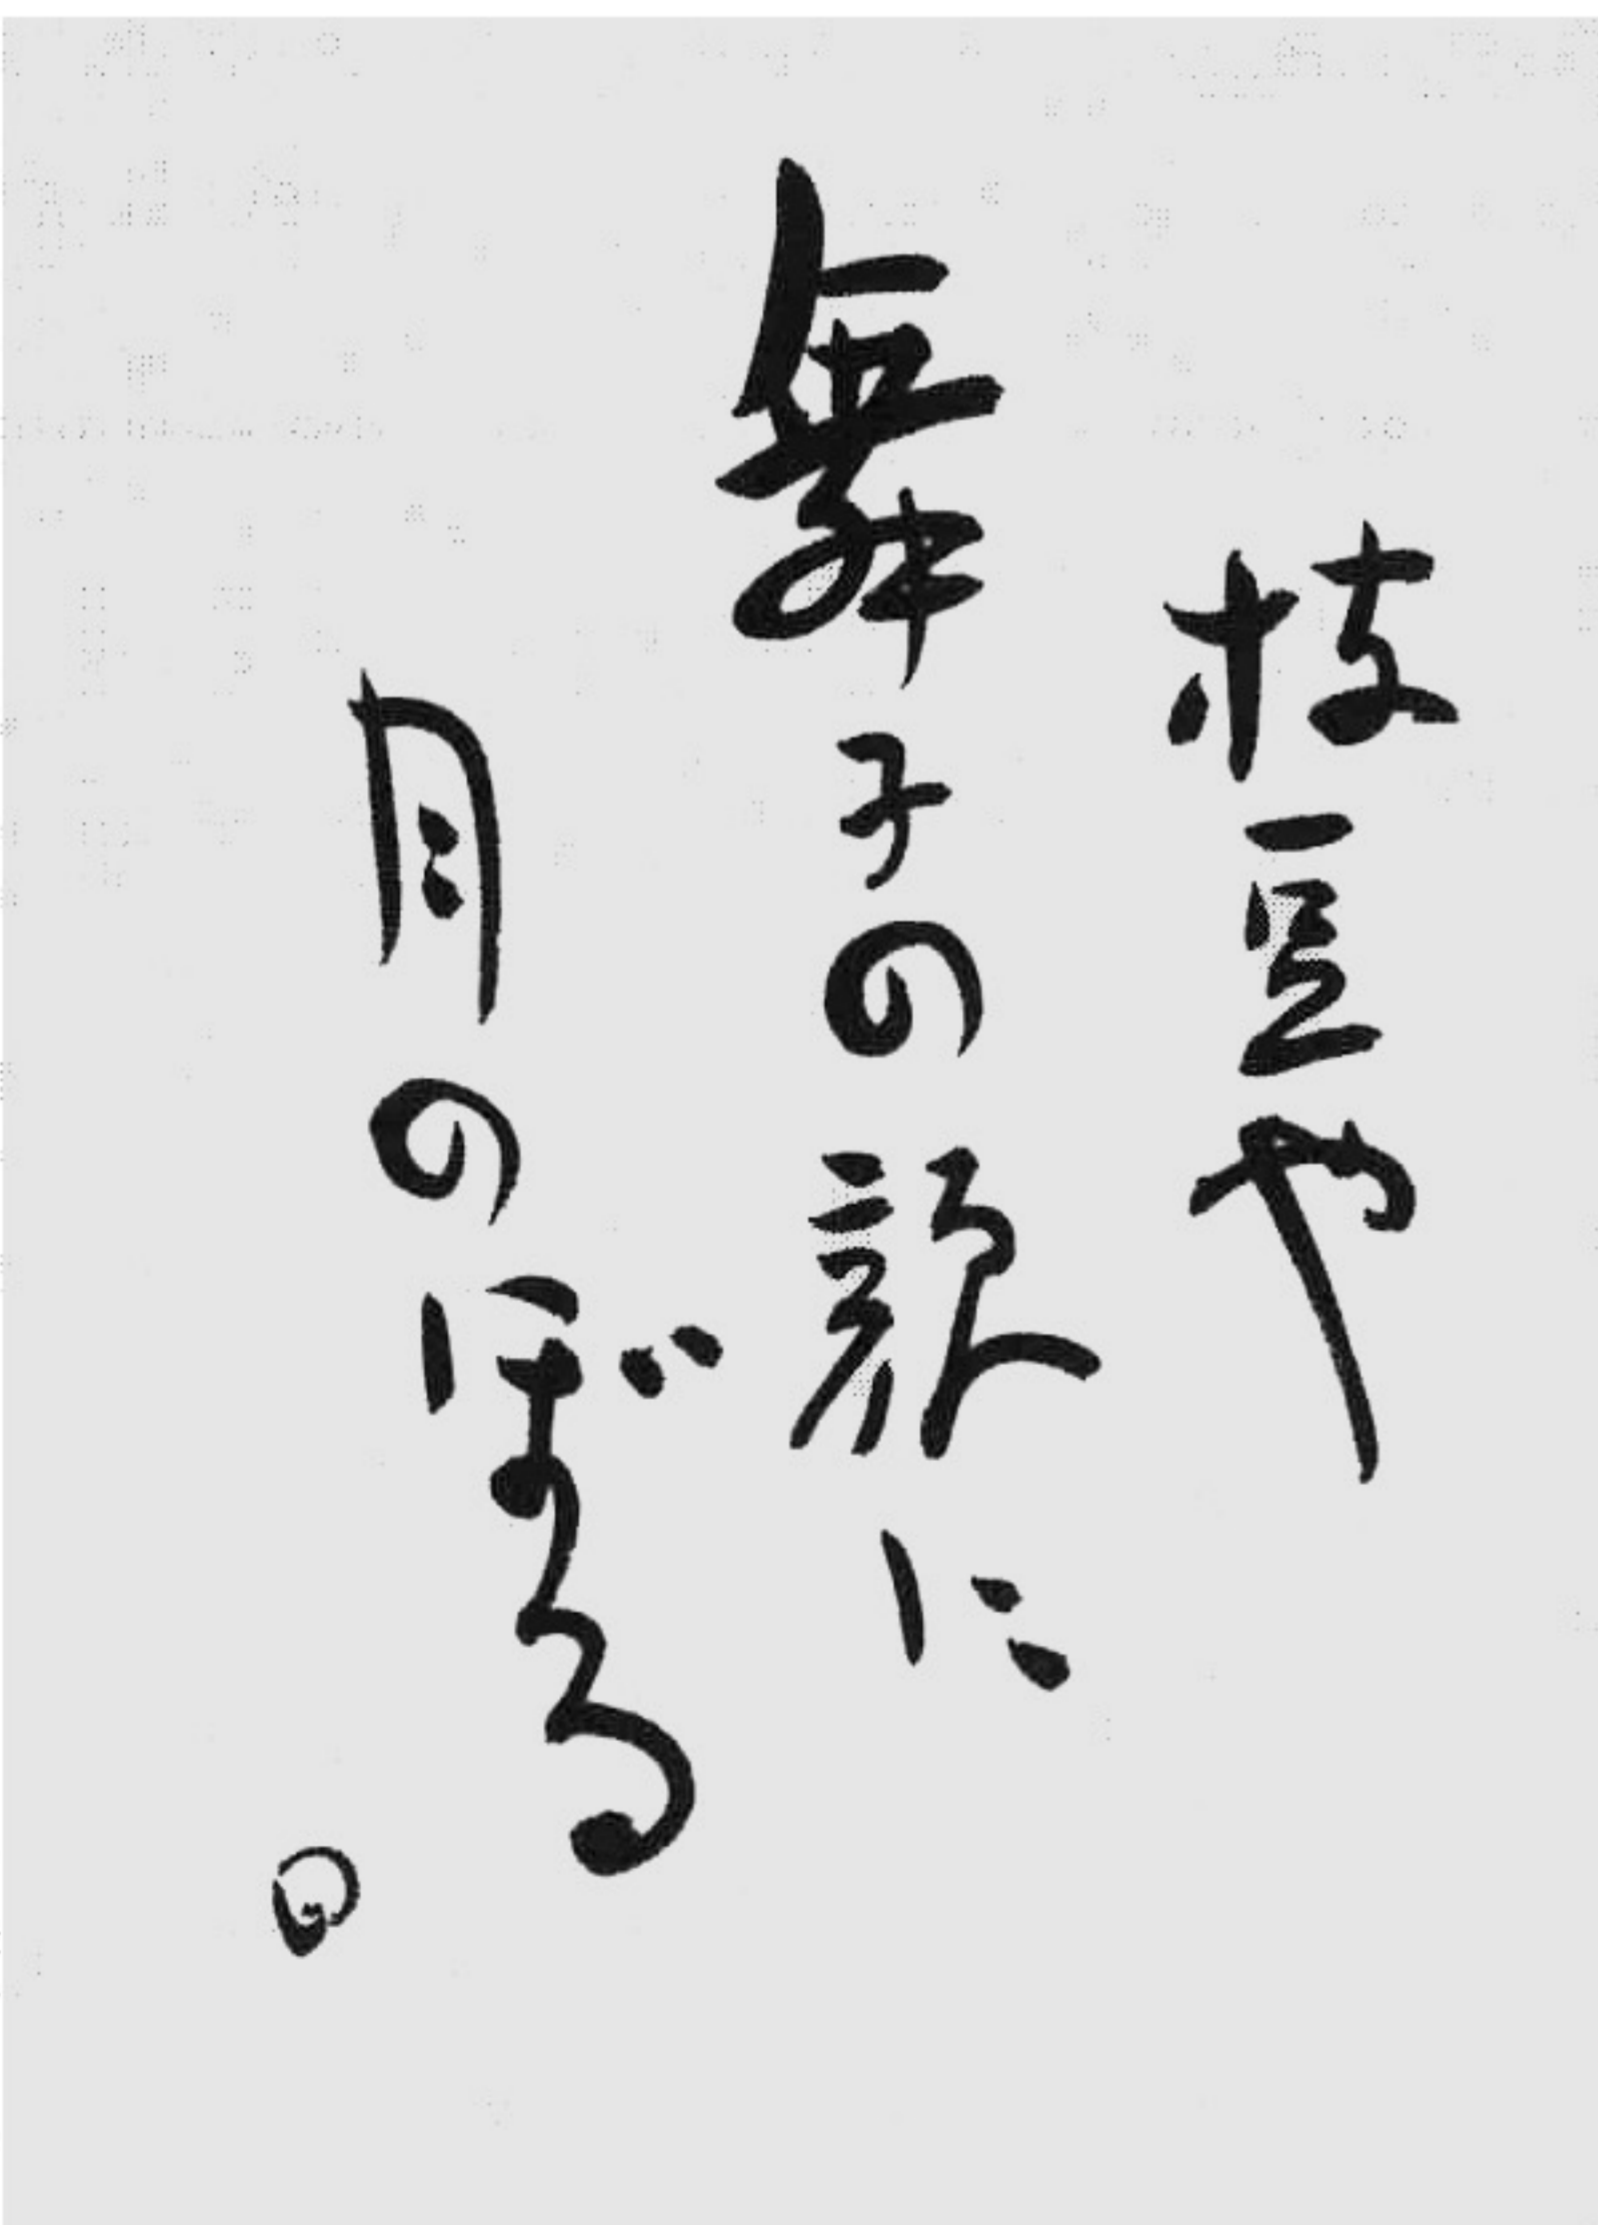 枝豆や
舞子の顔に
月のぼる。